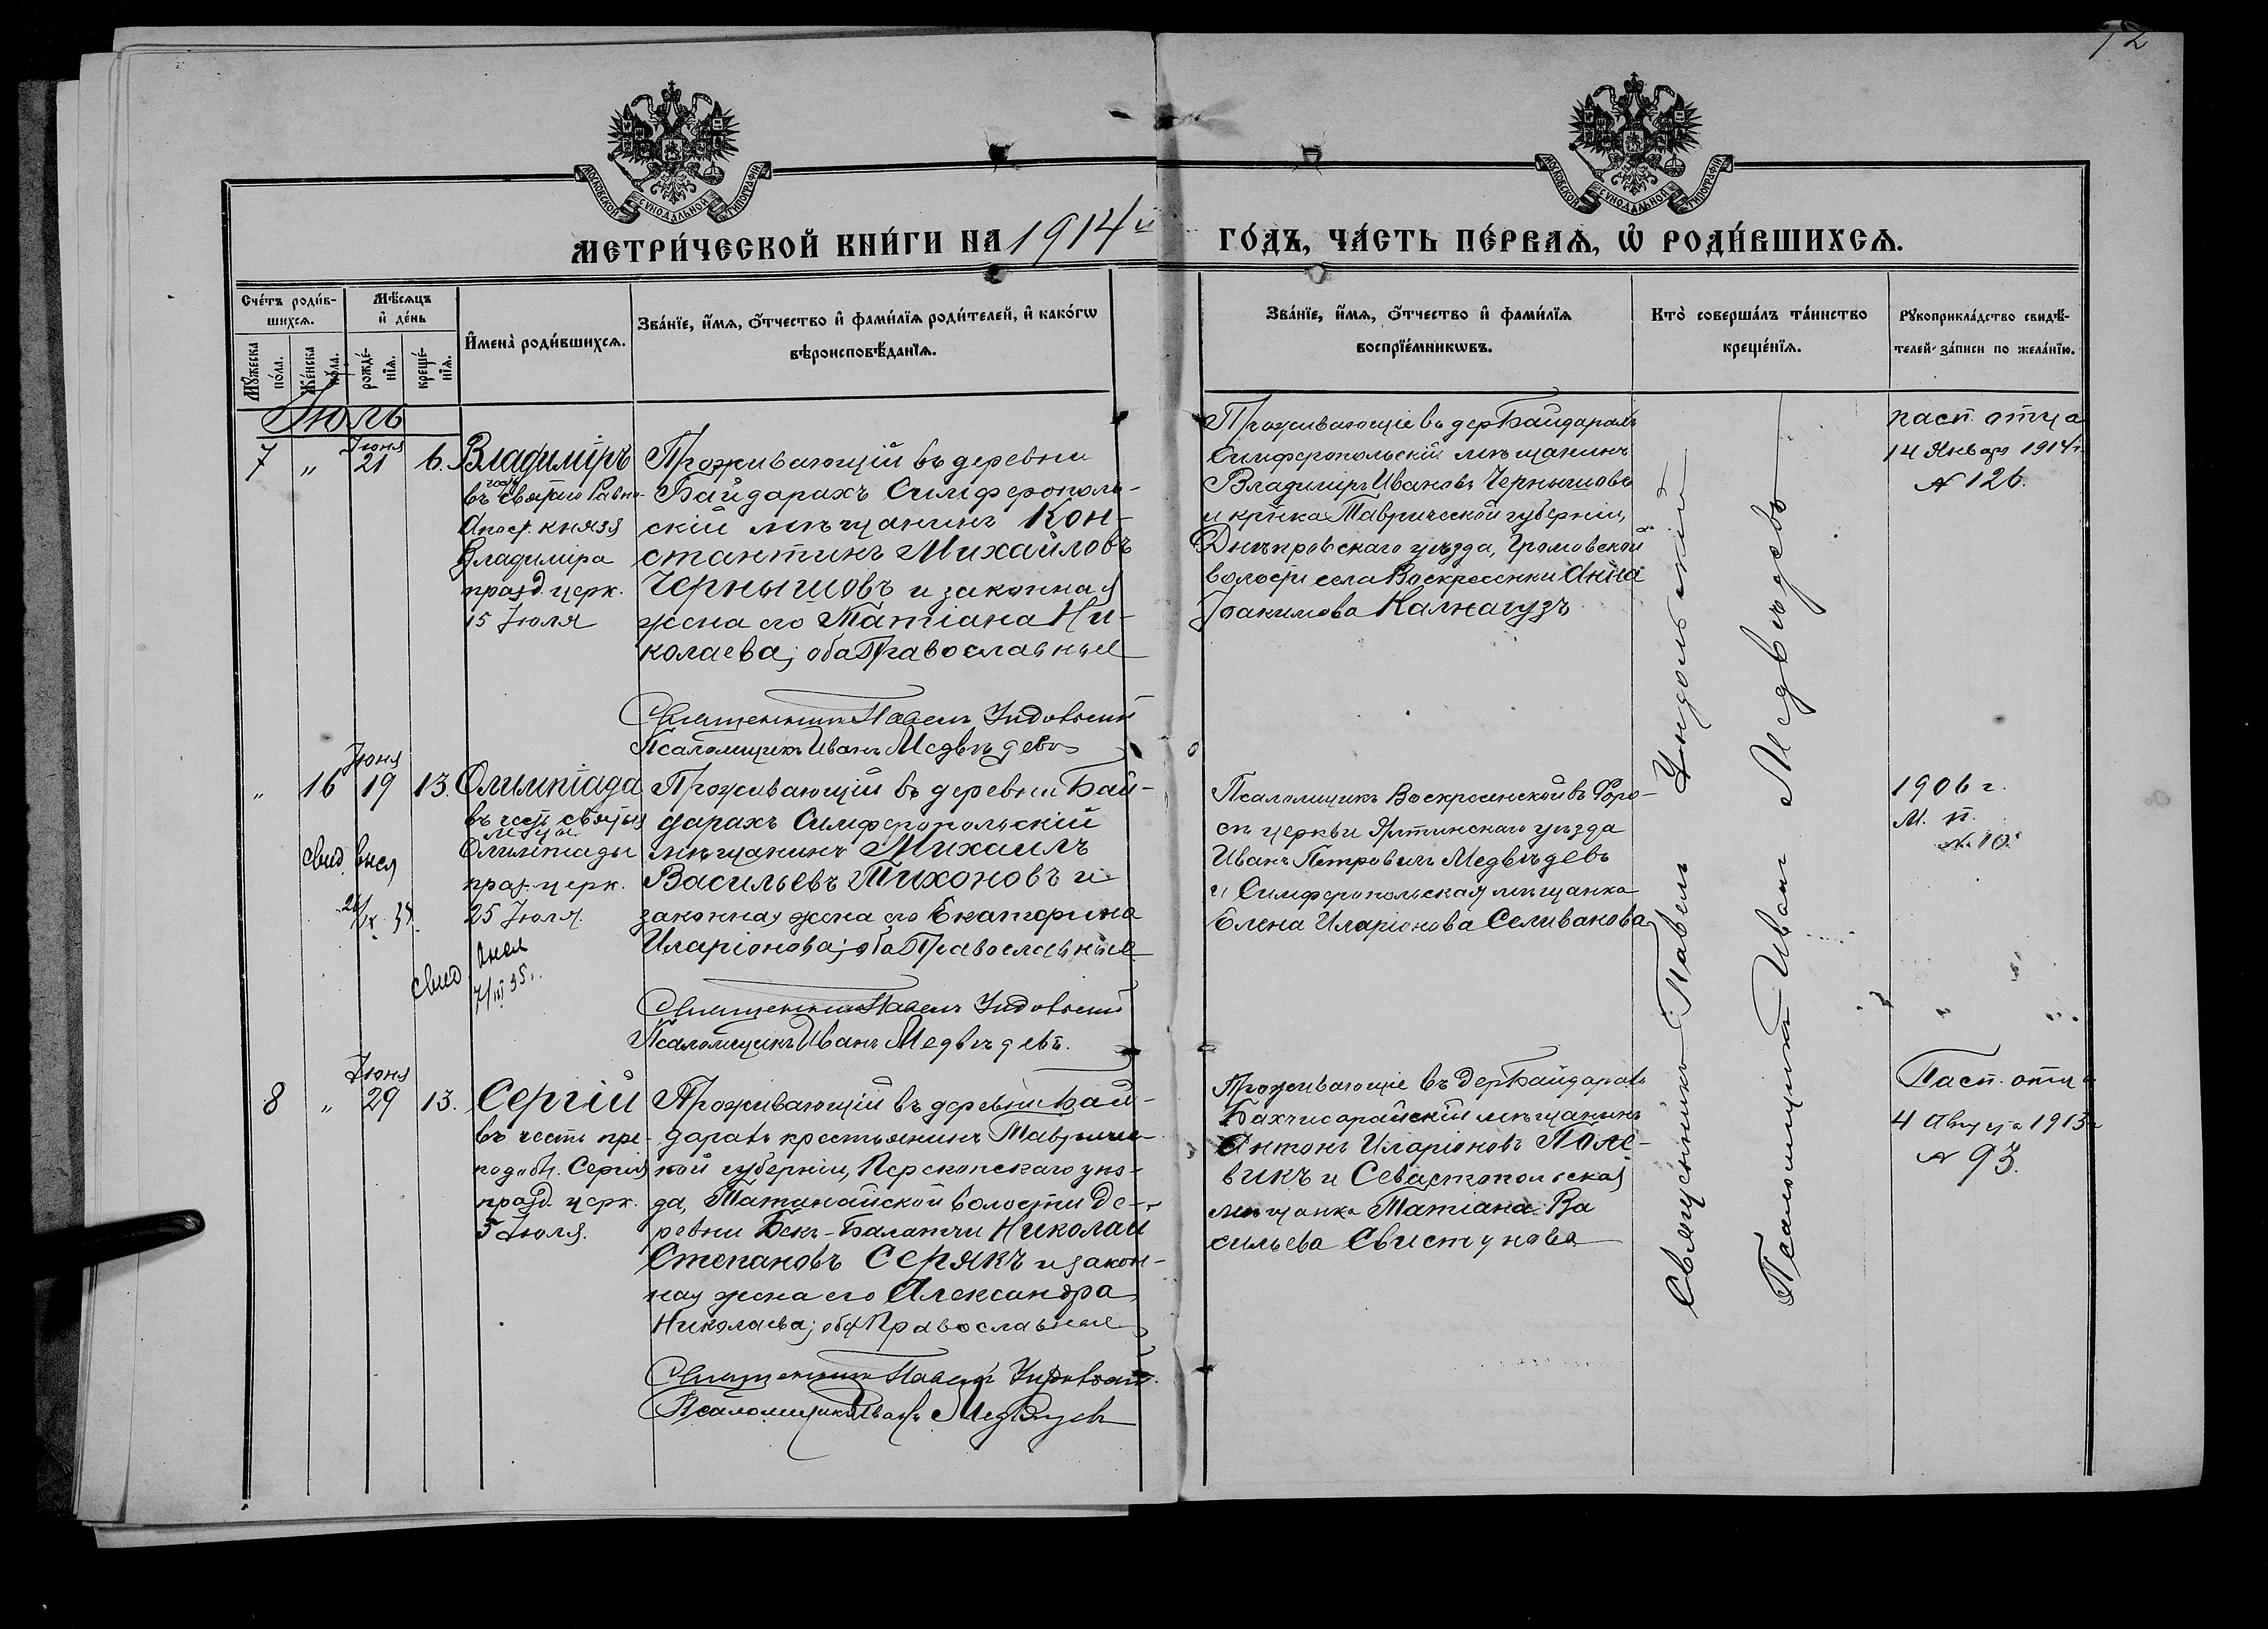 12
МОСКОВСКОЙ СУНОДАЛЬНОЙ ТИПОГРАФІИ
МОСКОВСКОЙ СУНОДАЛЬНОЙ ТИПОГРАФІИ
МЕТРИ́ЧЕСКОЙ КНИ́ГИ НА 1914й ГО́ДЪ, ЧА́СТЬ ПЕ́РВАѦ, Ѡ҆ РОДИ́ВШИХСѦ.
Счéтъ роди́в-
шихсѧ.
Мꙋ́жеска пóла.
Жéнска пóла.
Мѣ́сѧцъ
и҆ дéнь
рождé-
нїѧ.
крещé-
нїѧ.
И҆менà роди́вшихсѧ.
Звáнїе, и҆́мѧ, ѻ҆́тчество и҆ фами́лїѧ роди́телей, и҆ какóгѡ
вѣроисповѣ́данїѧ.
Звáнїе, и҆́мѧ, ѻ҆́тчество и҆ фами́лїѧ
воспрїéмникѡвъ.
Ктò совершáлъ тáинство
крещéнїѧ.
Рꙋкоприклáдство свидѣ́-
телей зáписи по желáнїю.
Іюль
7 " Іюня 21 6.
Владиміръ
въ честь святаго Равно-
Апост. князя
Владиміра
празд. церк.
15 Іюля
Проживающій въ деревни
Байдарахъ Симферополь-
скій мѣщанинъ Кон-
стантинъ Михайловъ
Чернышовъ и законная
жена его Татіана Ни-
колаева; оба Православные
Священникъ Павелъ Ундольскій
Псаломщикъ Иванъ Медвѣдевъ
Проживающіе въ дер Байдарахъ
Симферопольскій мѣщанинъ
Владиміръ Ивановъ Чернышовъ
и кр-нка Таврической губерніи,
Днѣпровскаго уѣзда, Громовской
волости села Воскресенки Анна
Іоакимова Калнагузъ
пасп. отца
14 Января 1914 г.
№ 126.
" 16 Іюня 19 13.
Олимпіада
въ честь святыя
мчцы
Олимпіады
праз. церк.
25 Іюля.
свид. выся
свид
7/III 35.
Проживающій въ деревни Бай-
дарахъ Симферопольскій
мѣщанинъ Михаилъ
Васильевъ Тихоновъ и
законная жена его Екатерина
Иларіонова; оба Православные
Священникъ Павелъ Ундольскій
Псаломщикъ Иванъ Медвѣдевъ.
Псаломщикъ Воскресенской въ Форо-
сѣ церкви Ялтинскаго уѣзда
Иванъ Петровичъ Медвѣдевъ
и Симферопольская мѣщанка
Елена Иларіонова Селиванова
1906 г.
М. п.
№ 10.
8 " Іюня 29 13.
Сергій
въ честь пре-
подобн. Сергія
празд. церк.
5 Іюля.
Проживающій въ деревни Бай-
дарахъ крестьянинъ Тавричес-
кой губерніи, Перекопскаго уѣз-
да, Татанайской волости де-
ревни Бекъ-Балатчи Николай
Степановъ Серякъ и закон-
ная жена его Александра
Николаева; оба Православные
Священникъ Павелъ Ундольскій.
Псаломщикъ Иванъ Медвѣдевъ
Проживающіе въ дер Байдарахъ
Бахчисарайскій мѣщанинъ
Антонъ Иларіоновъ Поле-
викъ и Севастопольская
мѣщанка Татіана Ва
сильева Свистунова
Пасп. отца
4 Августа 1913 г
№ 93.
Священникъ Павелъ Ундольскій
Псаломщикъ Иванъ Медвѣдевъ